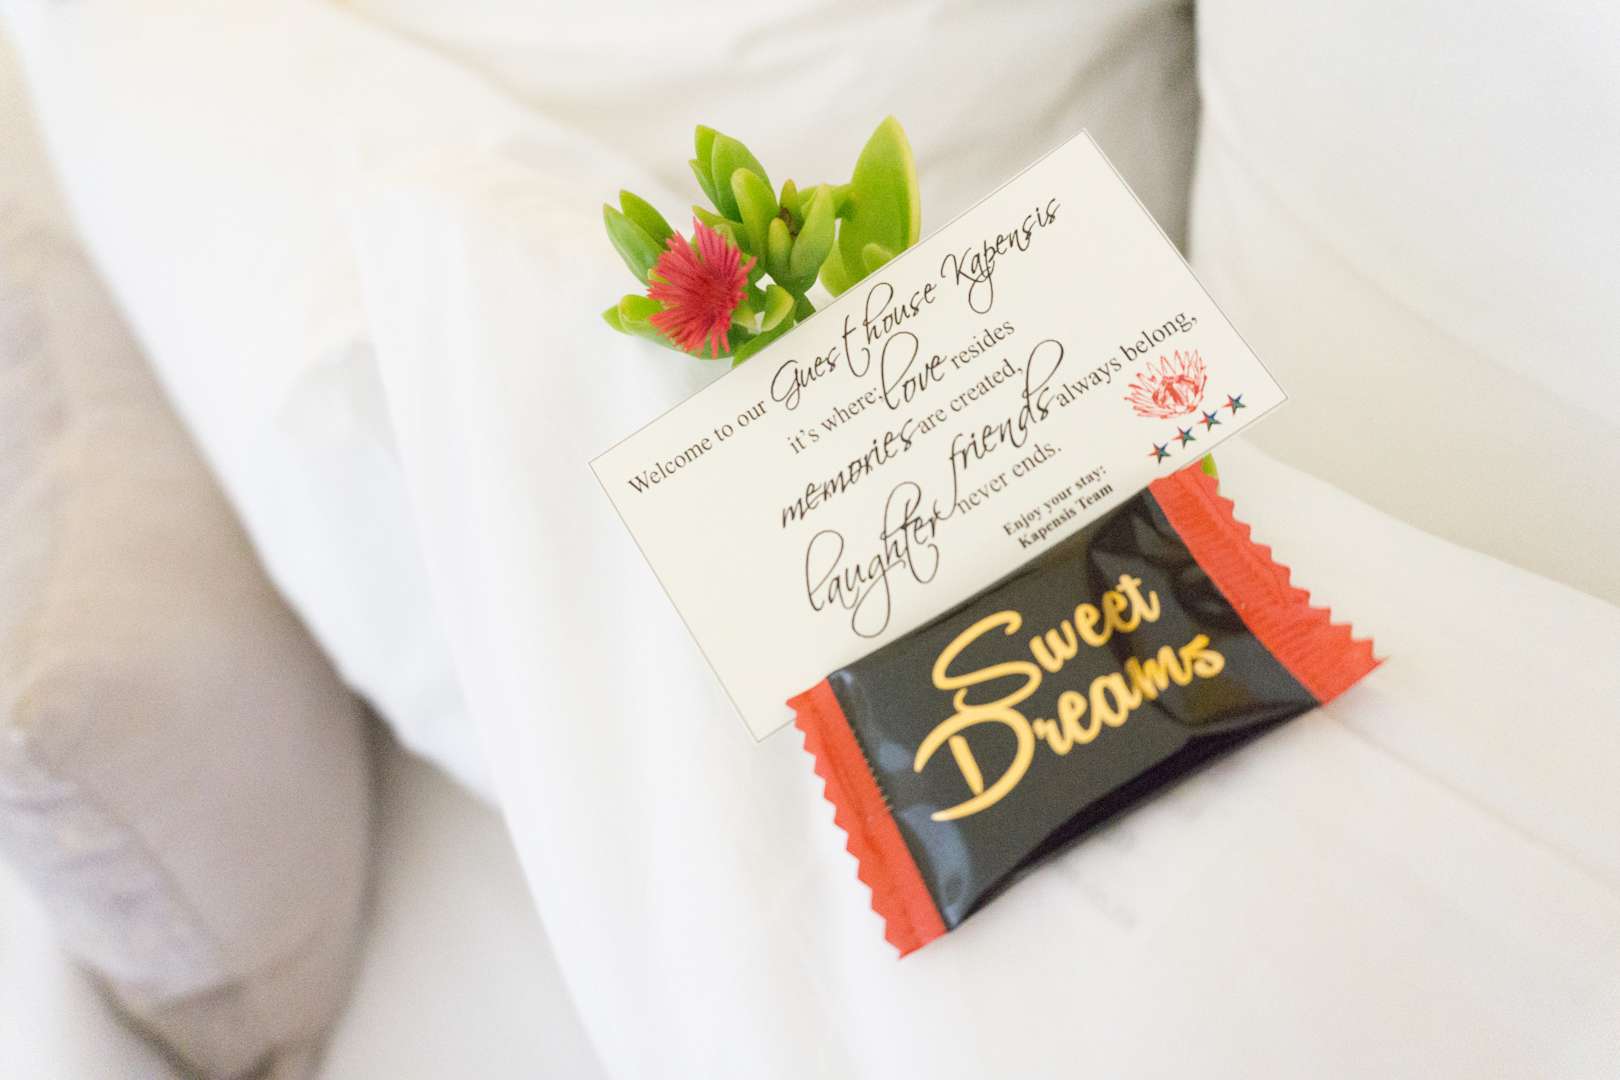 Welcome to our Guesthouse Kapensis
it's where: love resides
memories are created,
friends always belong,
laughter never ends.
Enjoy your stay:
Kapensis Team
Sweet
Dreams